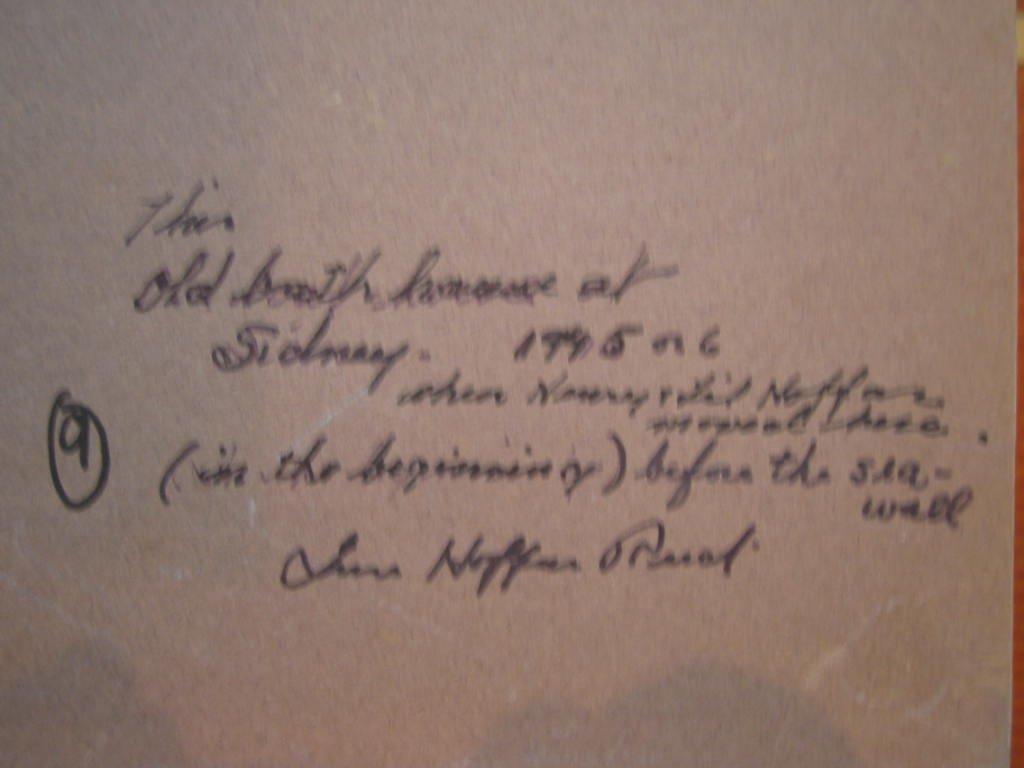 This
Old boath house at
Sidney. 1945 or 6
when Henry & Lil Hoffar
moved here.
(in the beginning) before the sea-
wall
9
Hoffar